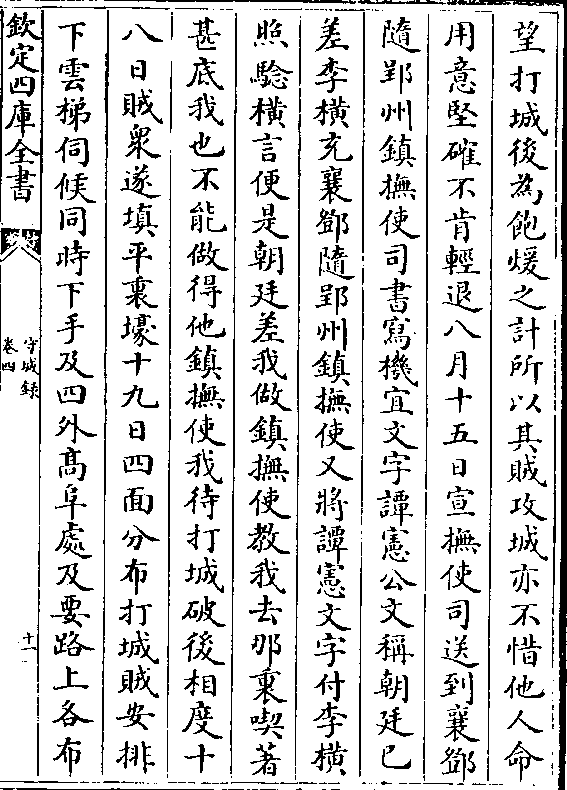 望打城後為飽煖之計所以其賊攻城亦不惜他人命
用意堅確不肯輕退八月十五日宣撫使司送到襄鄧
隨郢州鎮撫使司書寫機宜文字譚憲公文稱朝廷已
差李橫充襄鄧隨郢州鎮撫使又將譚憲文字付李橫
照驗橫言便是朝廷差我做鎮撫使教我去那裏喫著
甚底我也不能做得他鎮撫使我待打城破後相度十
八日賊衆遂填平裏壕十九日四面分布打城賊安排
下雲梯伺候同時下手及四外高阜處及要路上各布
欽定四庫全書
守城録
卷四
十一